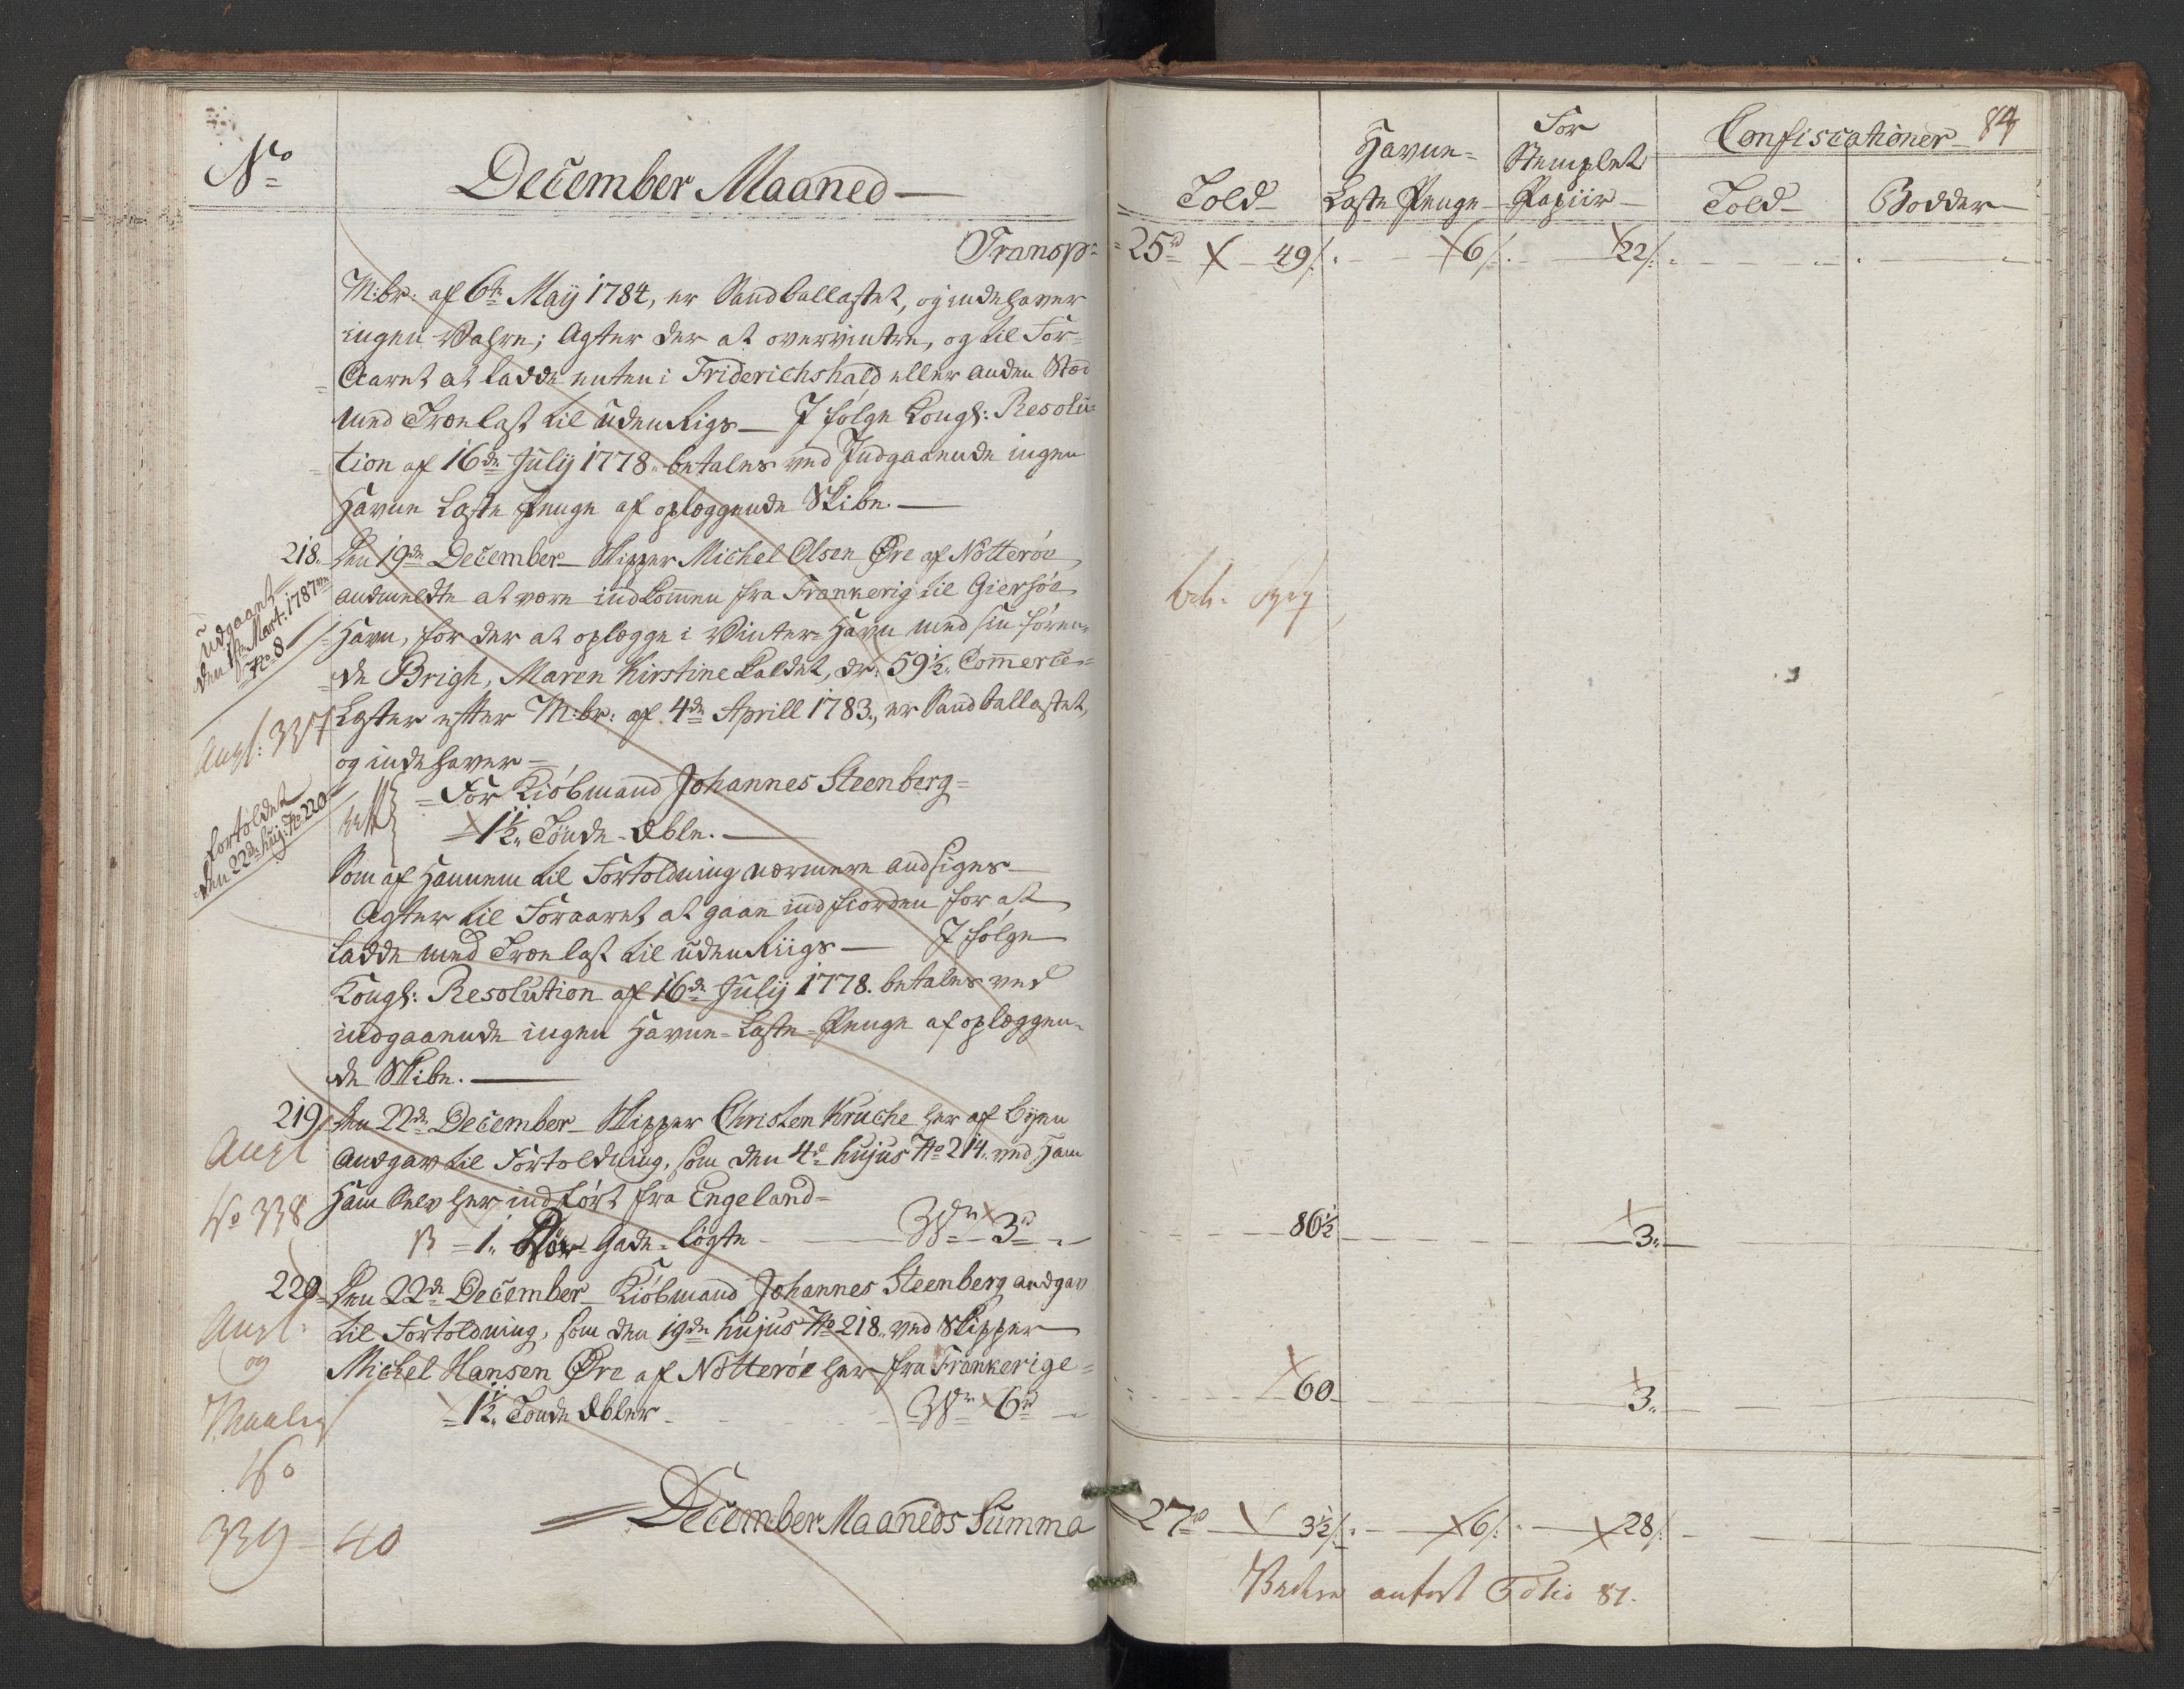 No
December Maaned
Transp:
M:br: af 6te Maij 1784, er Sandballastet, og indehaver
ingen Wahre; Agter der at overvintre, og til For-
Aaret at ladde enten i Friderichshald eller anden Stæd
med Trælast til udenRigs_ I følge Kongl: Resolu-
tion af 16de Julij 1778. betales ved Indgaaende ingen
Havne Læste Penge af oplæggende Skibe.
218. Den 19de December_ Skipper Michel Olsen Øre af Nötteröe
andmeldte at være indkommen fra Frankerig til Giersöe
Havn, for der at oplægge i Winter-Havn med sin füren-
de Brigh, Maren Kirstine Kaldet, dr: 59½. Commerce-
Læster efter M:br: af 4de Aprill 1783., er Sandballastet,
og indehaver-
udgaaet
den 1ste Mart: 1787
No 8
Angl: 337
= For Kiöbmand Johannes Steenberg=
1½. Tönde Æble.
fortoldet
den 22de huj: No 220
Som af Hannem til Fortoldning nærmere andsiges
Agter til Foraaret at gaae indfiorden for at
ladde med Trælast til udenRiigs_ I følge
Kongl: Resolution af 16de Julij 1778. betales ved
indgaaende ingen Havne-Læste-Penge af oplæggen-
de Skibe.
219. Den 22de December_ Skipper Christen Kruche her af Byen
Andgav til Fortoldning, som den 4de hujus No 214. ved Ham
Ham Selv her indført fra Engeland=
Angl
No 338
1. Gade-Lögte Wr 3rd
220 Den 22de December_ Kiöbmand Johannes Steenberg andgav
til Fortoldning, som den 19de hujus No 218. ved Skipper
Michel Hansen Øre af Nötteröe her fra Frankerige=
=1½. Tönde Æbler Wr 6rd
Angl:
og
No
339-40
December Maaneds Summa
84
Told
Havne-
Læste Penge
For
Stemplet
Papiir
Confiscationer
Told
Bödder
25rd 49/. 6/. 22/.
86½ 3.
60 3.
27rd 3½/. 6/. 28/.
anført Folio 87.